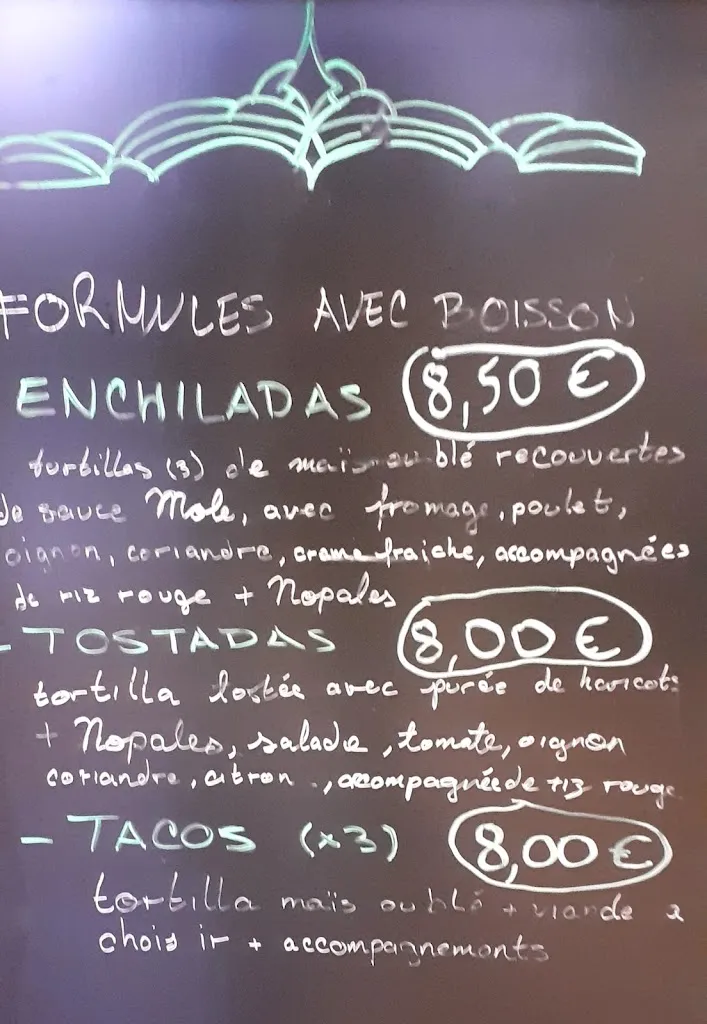 FORMULES AVEC BOISSON
ENCHILADAS 8,50 €
tortillas (3) de maïs ou blé recouvertes
de sauce Mole, avec fromage, poulet,
oignon, coriandre, creme fraiche, accompagnées
de riz rouge + Nopales
- TOSTADAS 8,00 €
tortilla tostée avec purée de haricots
+ Nopales, salade, tomate, oignon
coriandre, citron ., accompagnée de riz rouge
- TACOS (x3) 8,00 €
tortilla maïs ou blé + viande a
choisir + accompagnements